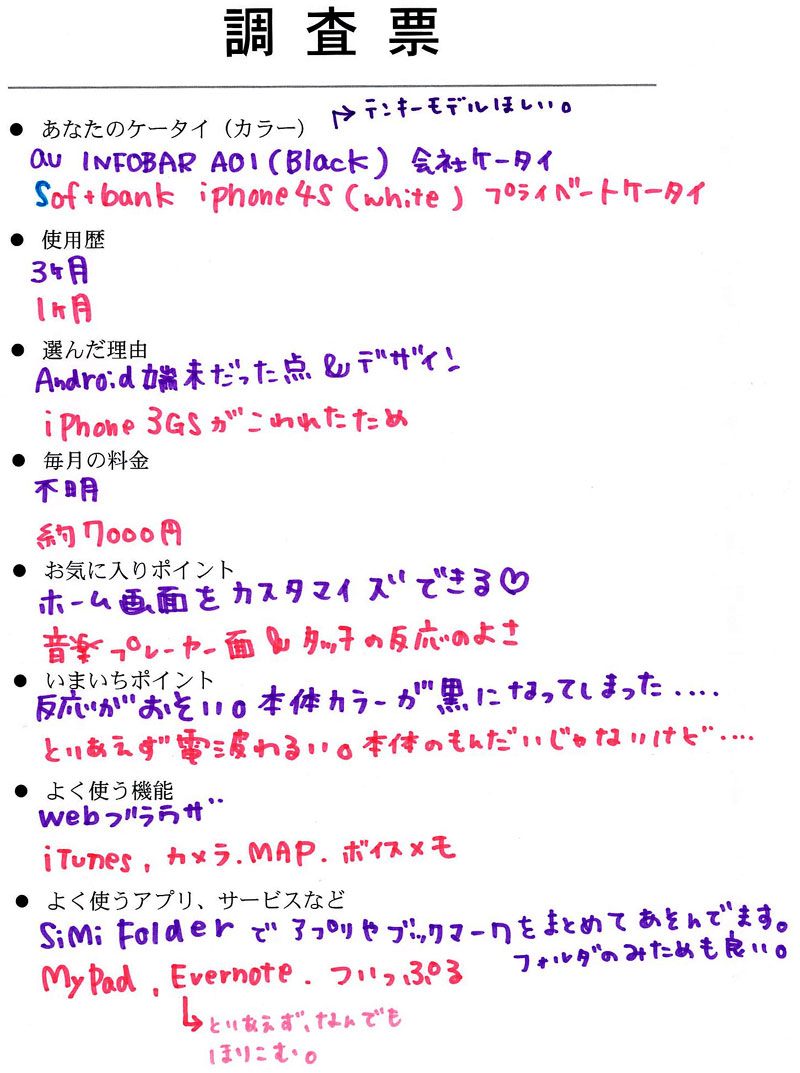 調査票
● あなたのケータイ（カラー）
→テンキーモデルほしい。
au INFOBAR A01 (Black) 会社ケータイ
Softbank iphone 4S (white) プライベートケータイ
● 使用歴
3ヶ月
1ヶ月
● 選んだ理由
Android端末だった点&デザイン
iPhone 3GSがこわれたため
● 毎月の料金
不明
約7000円
● お気に入りポイント
ホーム画面をカスタマイズできる♡
音楽プレーヤー面&タッチの反応のよさ
● いまいちポイント
反応がおそい。本体カラーが黒になってしまった‥‥
とりあえず電波わるい。本体のもんだいじゃないけど‥‥
● よく使う機能
webブラウザ
iTunes, カメラ. MAP. ボイスメモ
● よく使うアプリ、サービスなど
SiMi Folderでアプリやブックマークをまとめてあそんでます。
フォルダのみためも良い。
MyPad, Evernote. ついっぷる
→とりあえず、なんでも
ほりこむ。